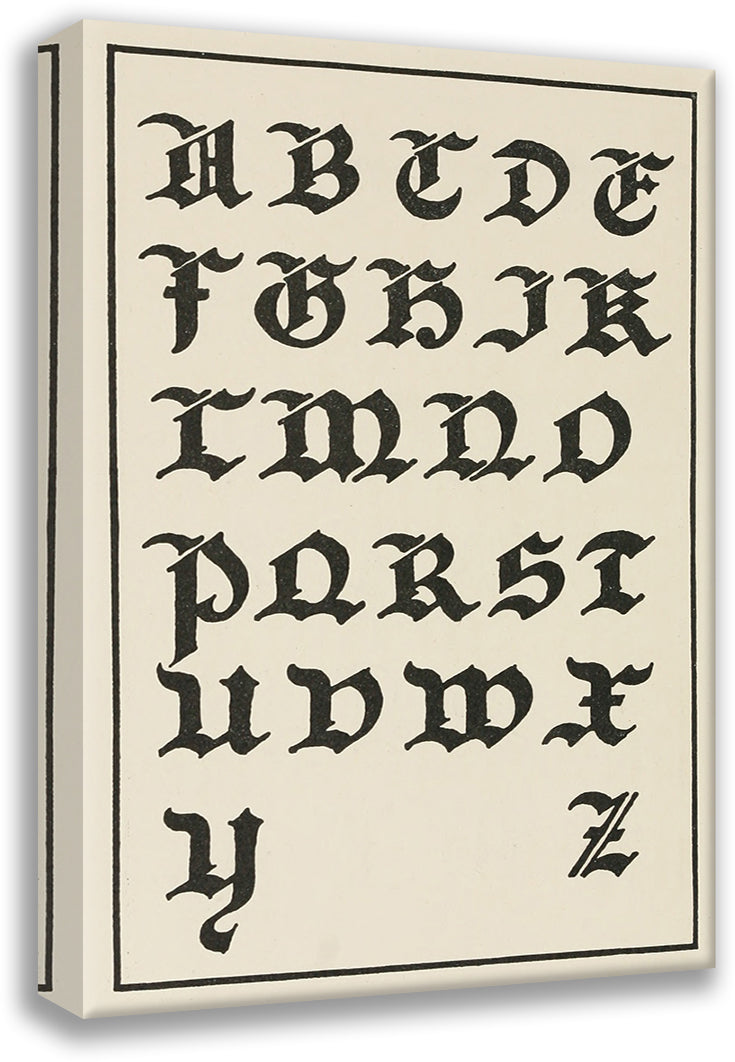 A B C D E
F G H I K
L M N O
P Q R S T
U V W X
Y Z